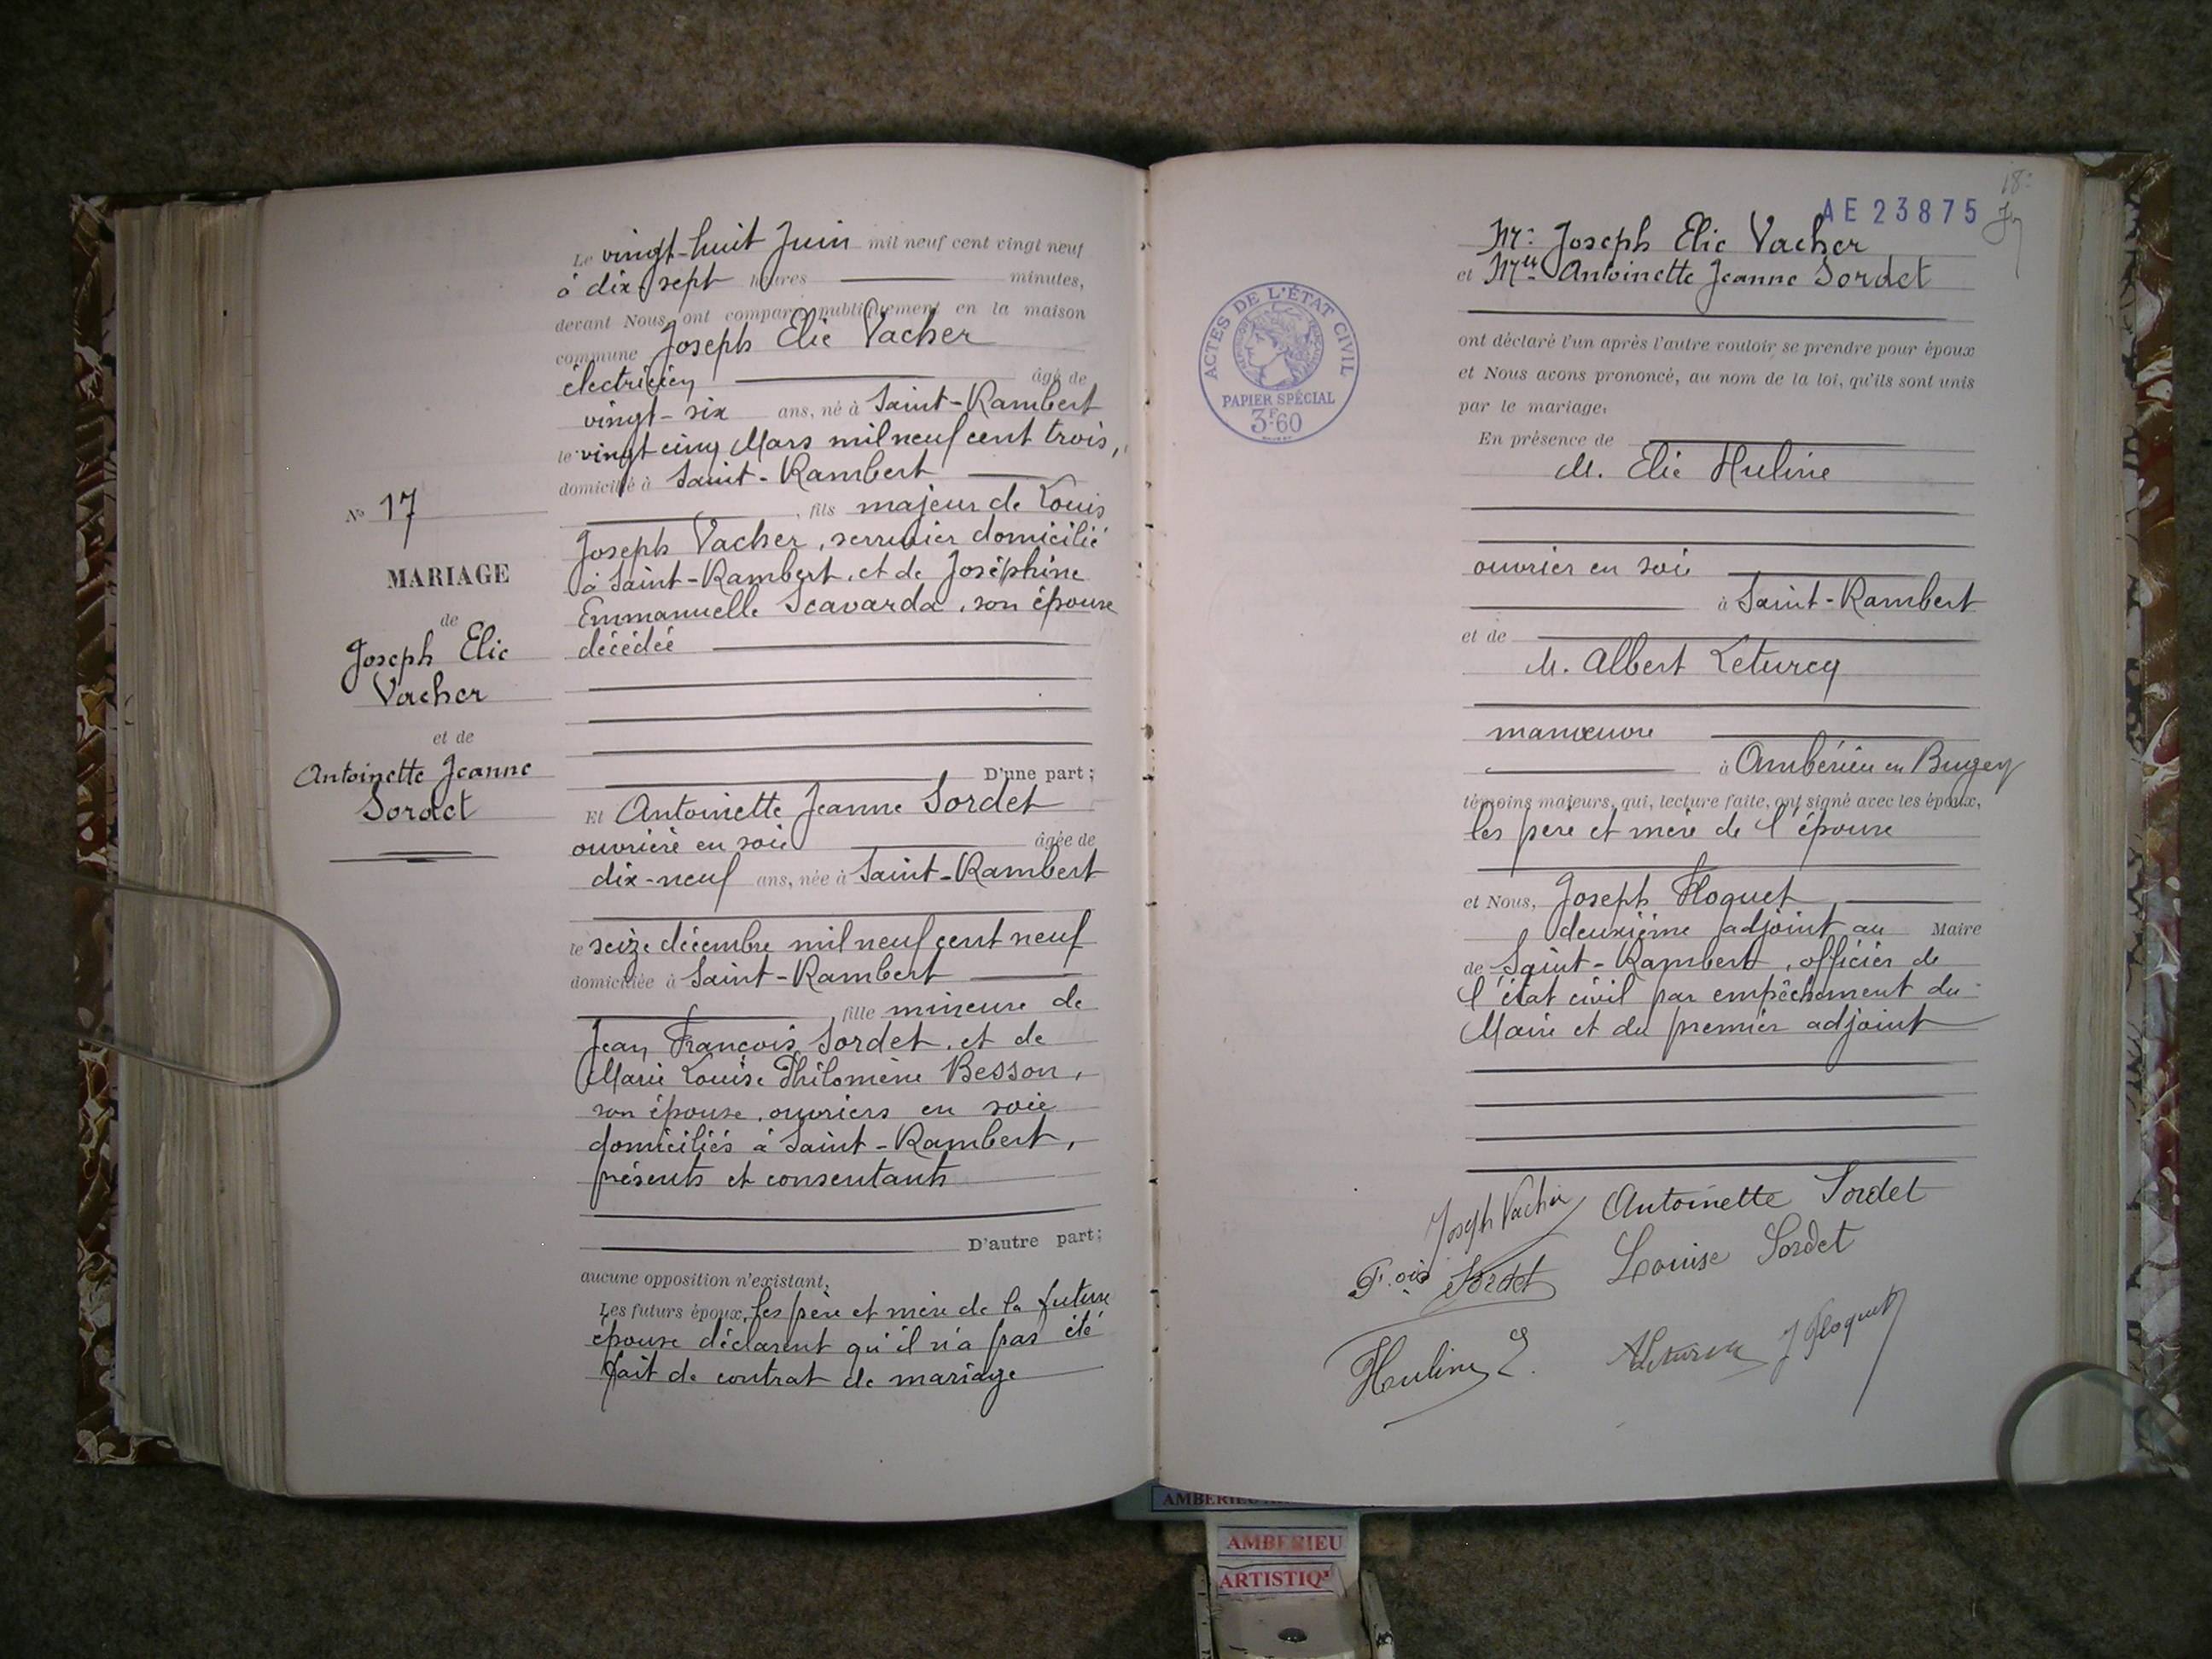 Le vingt-huit Juin mil neuf cent vingt neuf
à dix-sept heures minutes,
devant Nous, ont comparu publiquement en la maison
commune Joseph Elie Vacher
électricien âgé de
vingt-six ans, né à Saint-Rambert
le vingt cinq Mars mil neuf cent trois,
domicilié à Saint-Rambert
, fils majeur de Louis
Joseph Vacher, serrurier domicilié
à Saint-Rambert, et de Joséphine
Emmanuelle Scavarda, son épouse
décédée
D'une part;
Et Antoinette Jeanne Sordet
ouvrière en soie âgée de
dix-neuf ans, née à Saint-Rambert
le seize décembre mil neuf cent neuf
domiciliée à Saint-Rambert
, fille mineure de
Jean François Sordet, et de
Marie Louise Philomène Besson,
son épouse, ouvriers en soie
domiciliés à Saint-Rambert,
présents et consentants
D'autre part;
aucune opposition n'existant,
Les futurs époux, les père et mère de la future
épouse déclarent qu'il n'a pas été
fait de contrat de mariage
No 17
MARIAGE
de
Joseph Elie
Vacher
et de
Antoinette Jeanne
Sordet
18
AE 23875
Mr. Joseph Elie Vacher
et Mlle Antoinette Jeanne Sordet
ont déclaré l'un après l'autre vouloir se prendre pour époux
et Nous avons prononcé, au nom de la loi, qu'ils sont unis
par le mariage.
En présence de
M. Elie Huline
ouvrier en soie
à Saint-Rambert
et de
M. Albert Leturcq
manœuvre
à Ambérieu en Bugey
témoins majeurs, qui, lecture faite, ont signé avec les époux,
les père et mère de l'épouse
et Nous, Joseph Floquet,
deuxième adjoint au Maire
de Saint-Rambert, officier de
l'état civil par empêchement du
Maire et du premier adjoint
Joseph Vacher Antoinette Sordet
F.ois Sordet Louise Sordet
Huline E. ALeturcq J Floquet
ACTES DE L'ÉTAT CIVIL
PAPIER SPÉCIAL
3F60
AMBERIEU
AMBERIEU
ARTISTIQ